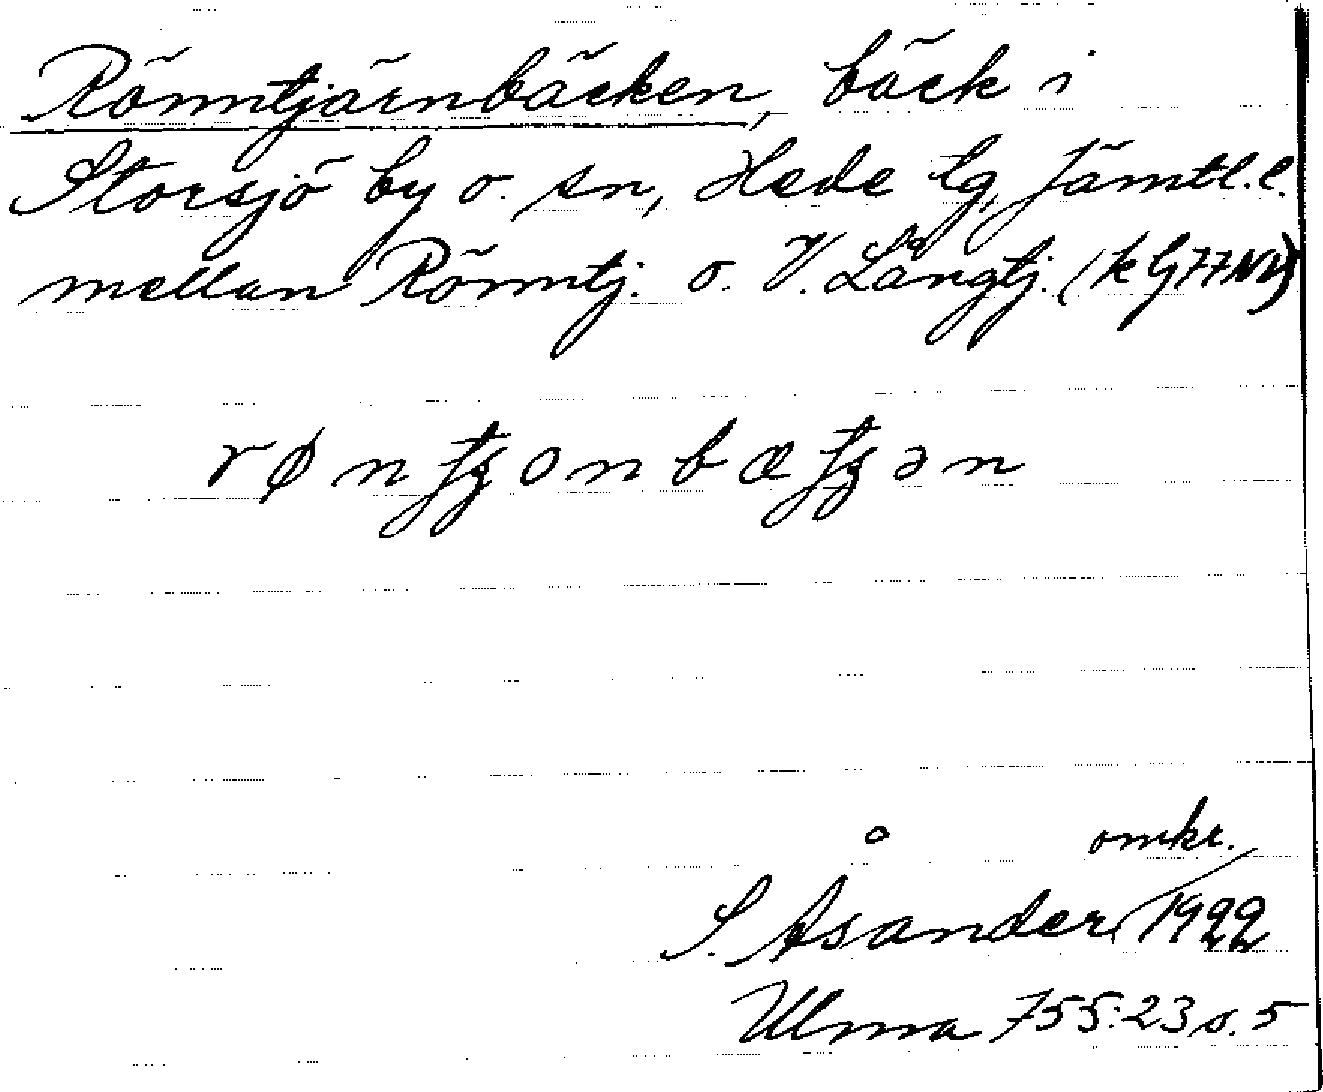 Rönntjärnbäcken, bäck i
Storsjö by o. sn, Hede tg, Jämtl. l.
mellan Rönntj. o. V. Långtj. (k G 77 NV)
rønʃʒonbæʃʒən
omkr.
S. Åsander, 1922
Ulma 755:23 s. 5